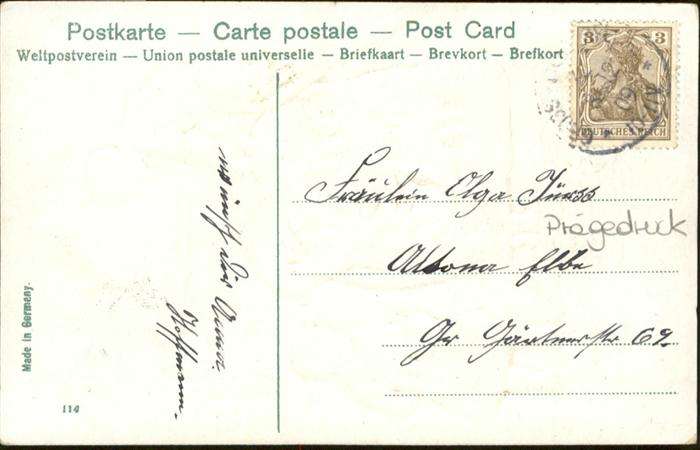 Postkarte — Carte postale — Post Card
Weltpostverein — Union postale universelle — Briefkaart — Brevkort — Brefkort
3 3
DEUTSCHES REICH
09
Fräulein Olga Jürss
Prägedruck
Altona Elbe
Gr Gärtnerstr 62
wünscht Dir Anna
Hoffmann.
Made in Germany.
114